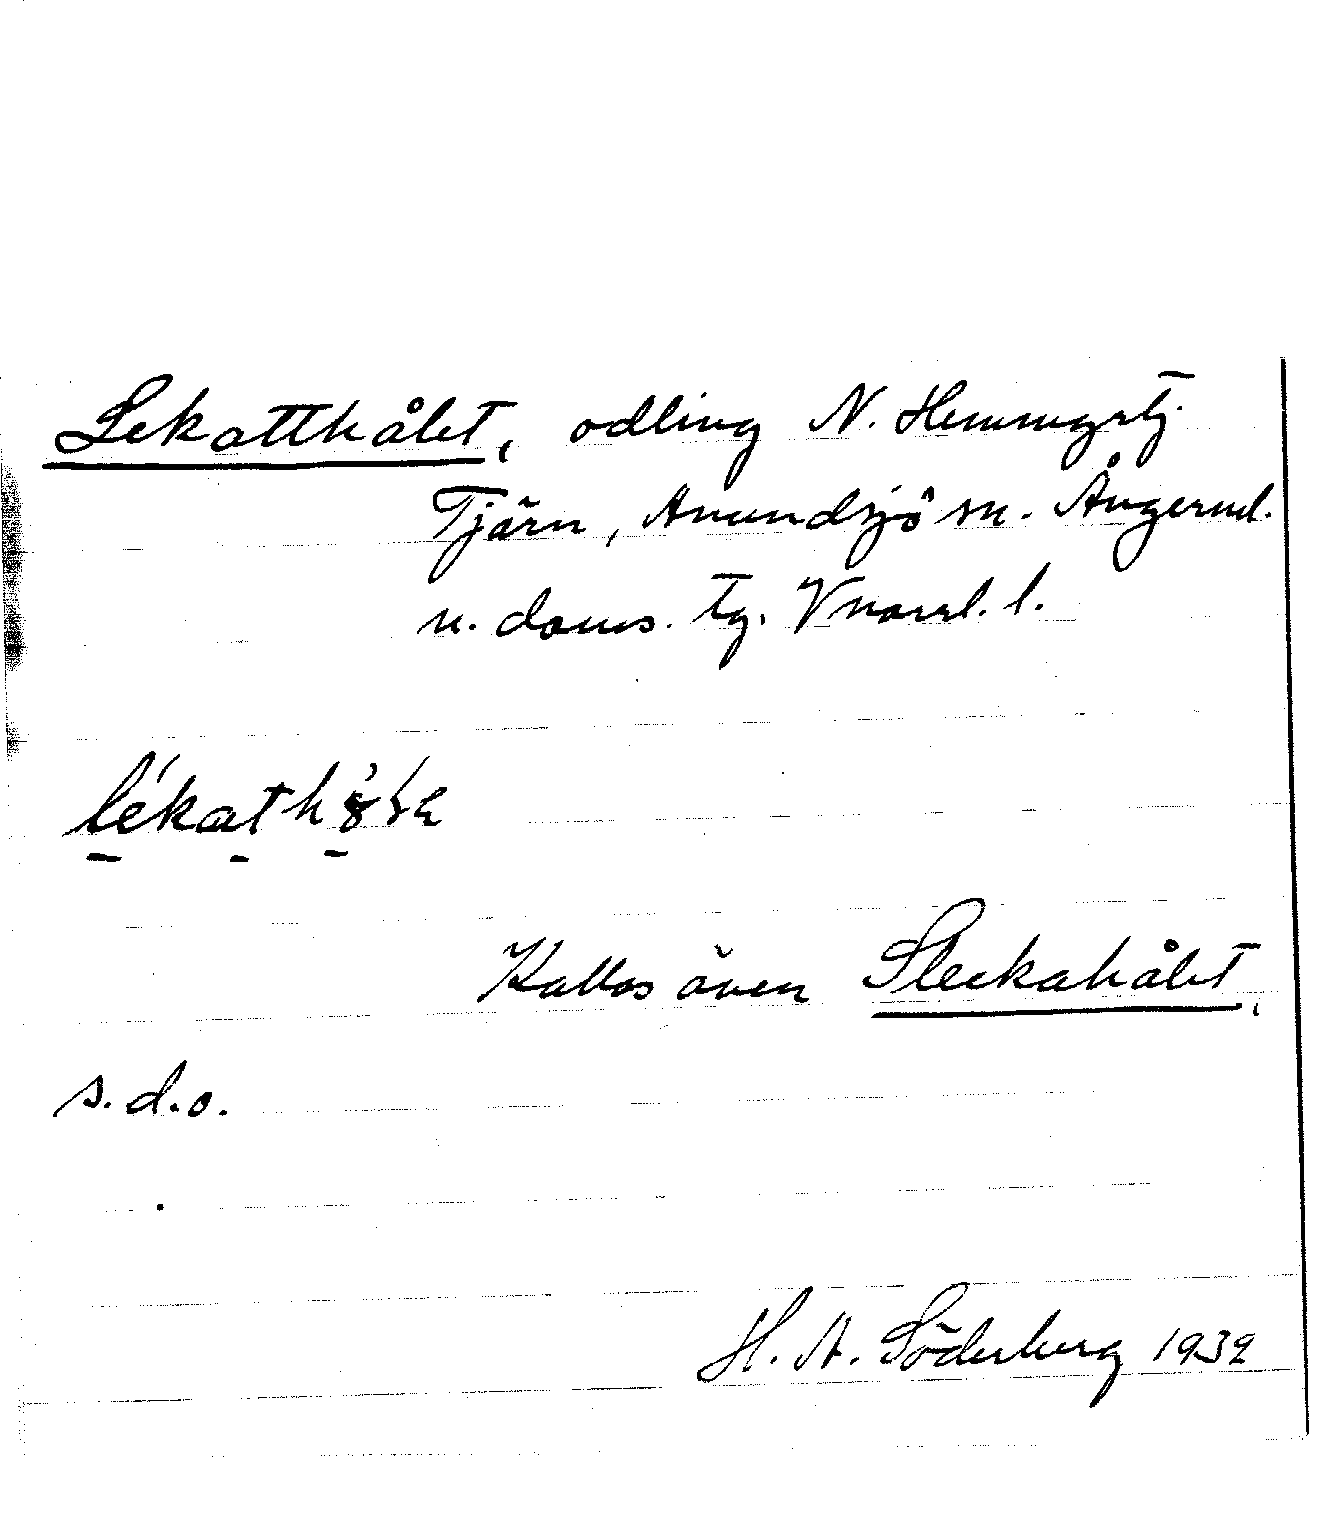 Lekatthålet, odling N. Hemmyrtj.
Tjärn, Anundsjö sn. Ångerml.
n. doms. tg. Vnorrl. l.
Kallas även Sleckahålet,
s.d.o.
H. A. Söderberg 1932